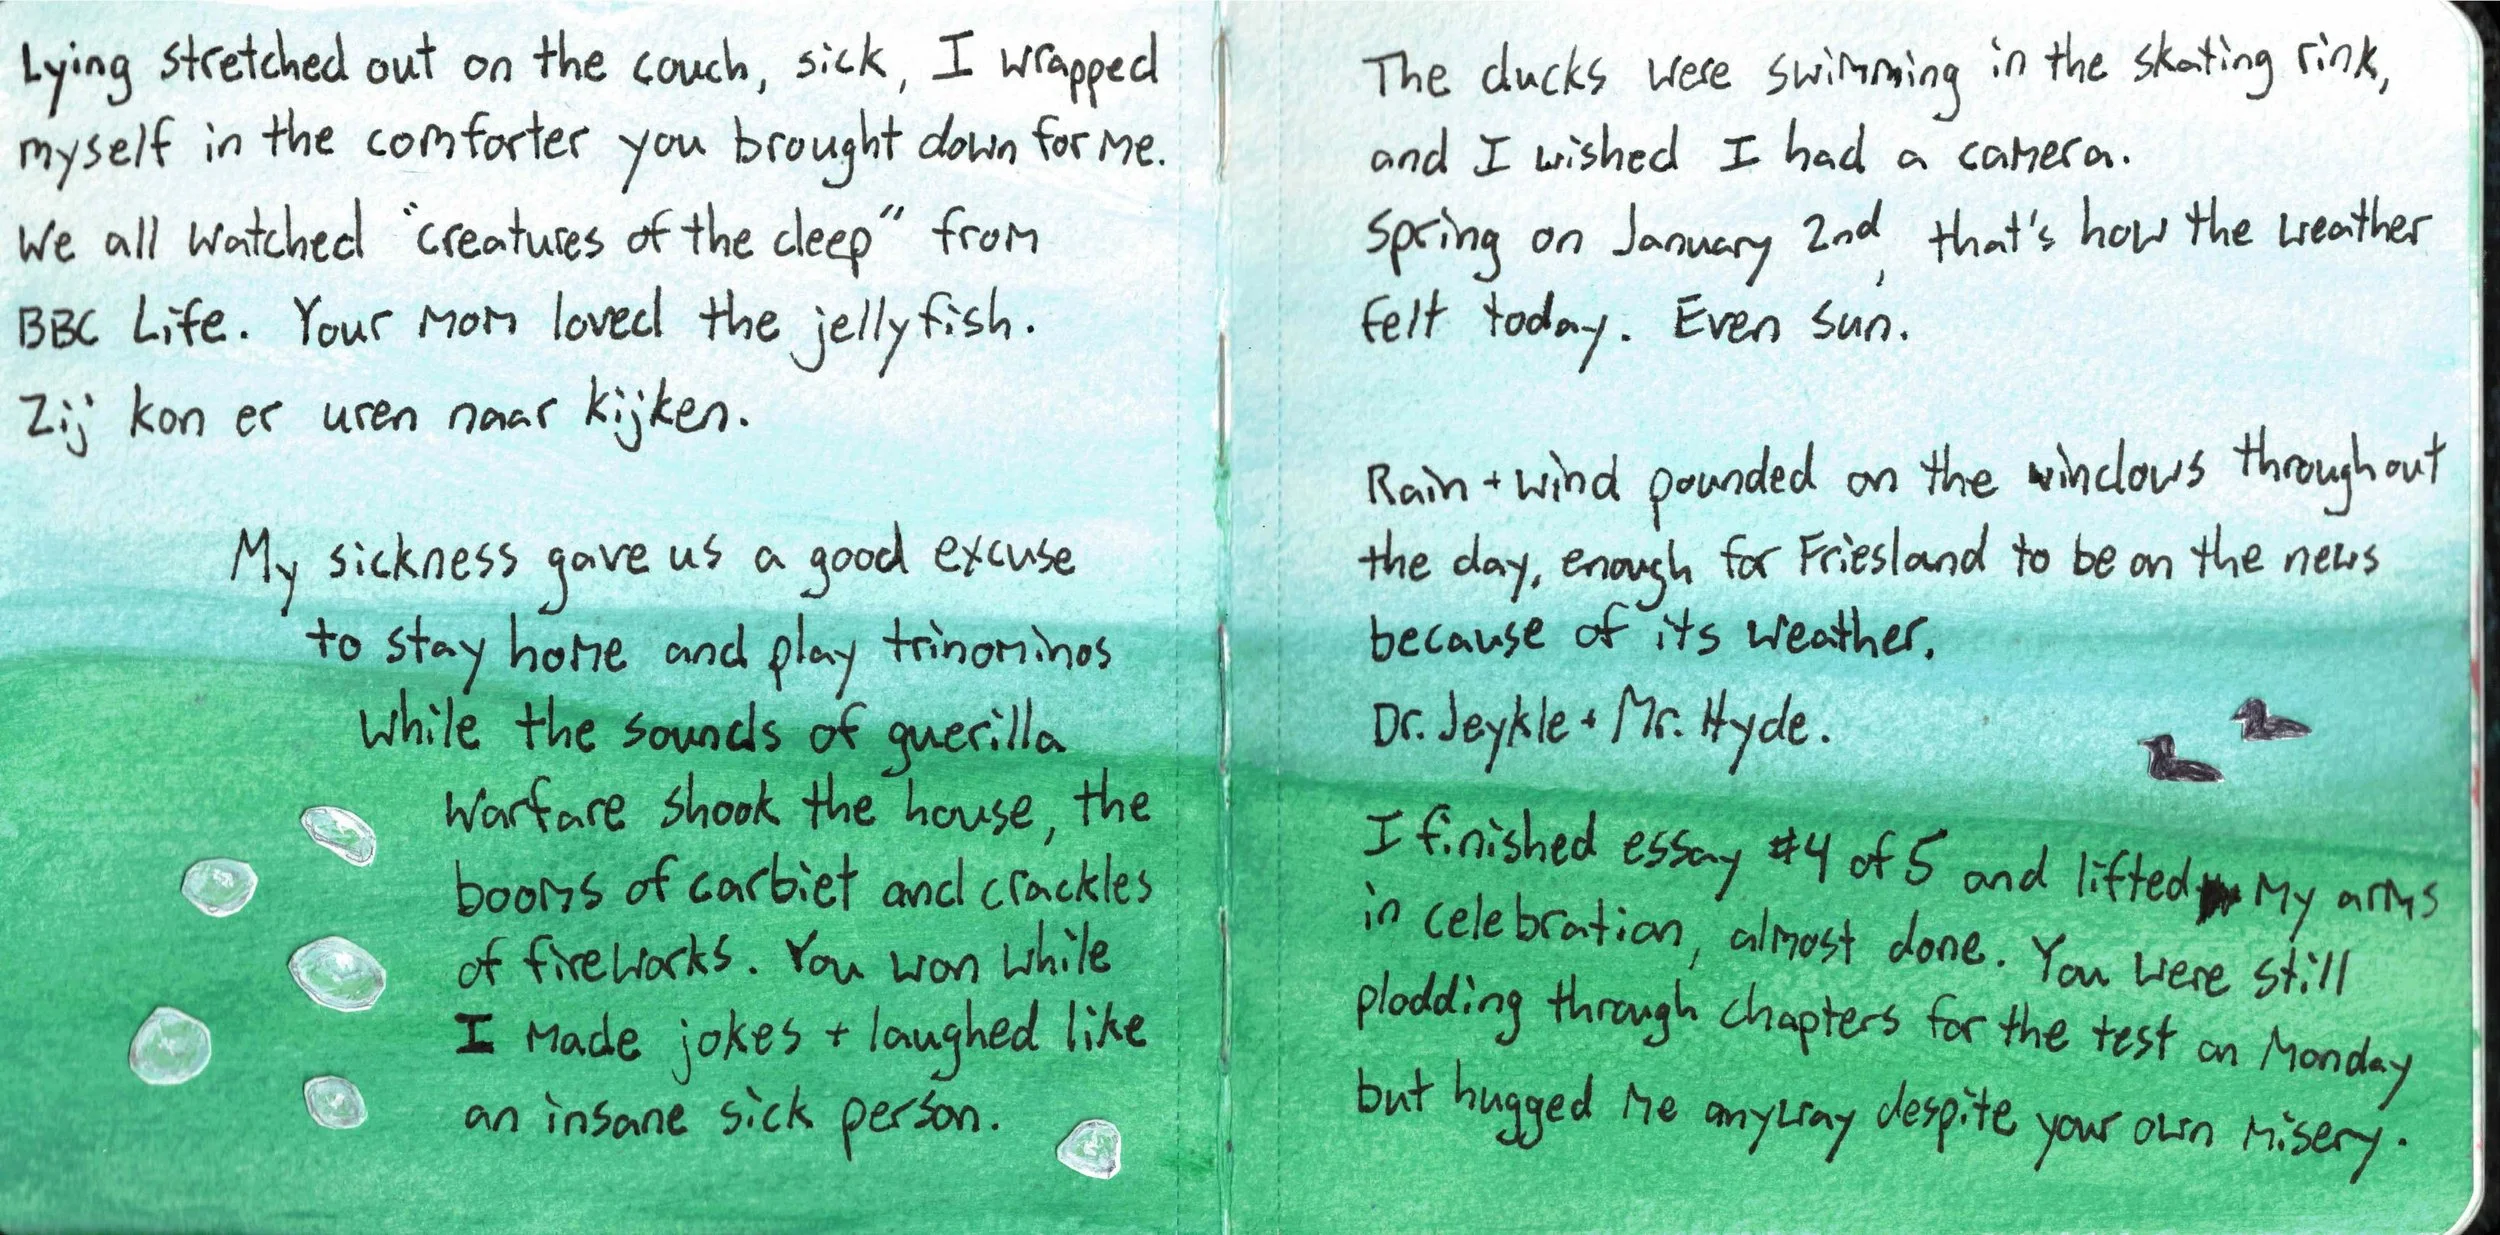 Lying stretched out on the couch, sick, I wrapped
myself in the comforter you brought down for me.
We all watched "creatures of the deep" from
BBC Life. Your mom loved the jellyfish.
Zij kon er uren naar kijken.
My sickness gave us a good excuse
to stay home and play trinominos
while the sounds of guerilla
warfare shook the house, the
booms of carbiet and crackles
of fireworks. You won while
I made jokes + laughed like
an insane sick person.
The ducks were swimming in the skating rink,
and I wished I had a camera.
Spring on January 2nd, that's how the weather
felt today. Even sun.
Rain + wind pounded on the windows throughout
the day, enough for Friesland to be on the news
because of its weather.
Dr. Jeykle + Mr. Hyde.
I finished essay #4 of 5 and lifted my arms
in celebration, almost done. You were still
plodding through chapters for the test on Monday
but hugged me anyway despite your own misery.